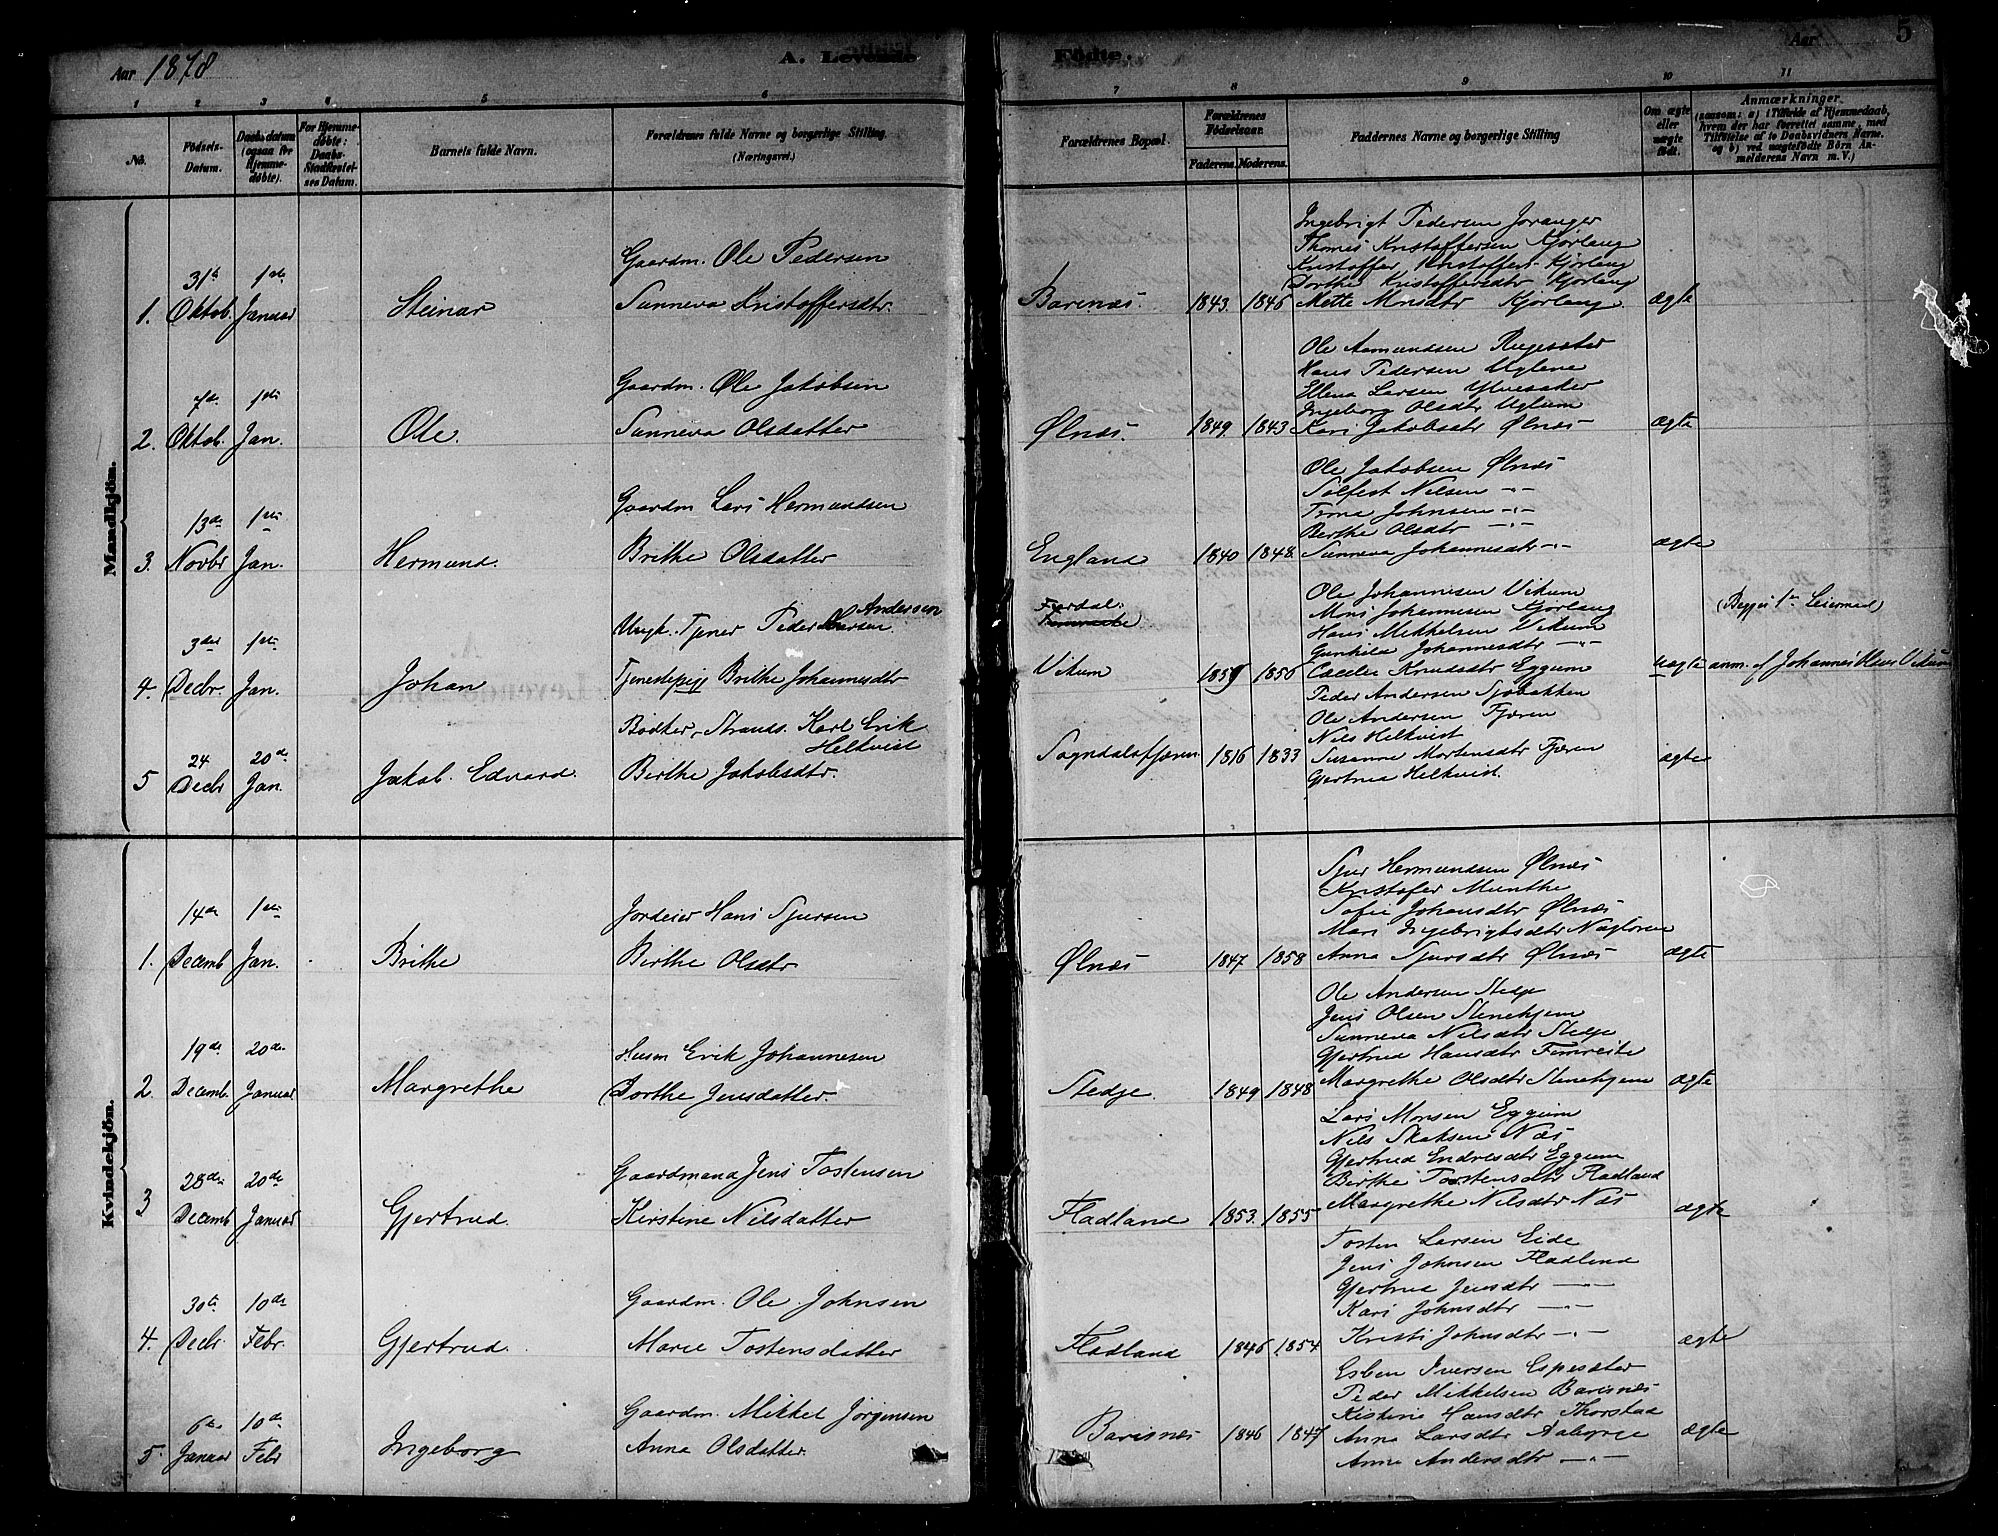 Aar 1878
A. Levende Födte.
Aar 5
1 2 3 4 5 6 7 8 9 10 11
No. Födsels-Datum. Daabsdatum (ogsaa for Hjemmedöbte). For Hjemmedöbte: Daabs-Stadfæstelses Datum. Barnets fulde Navn. Forældrenes fulde Navne og borgerlige Stilling. (Næringsvei.) Forældrenes Bopæl. Forældrenes Födselsaar. Faderens. Moderens. Faddernes Navne og borgerlige Stilling Om ægte eller uægte födt. Anmærkninger. (saasom: a) i Tilfælde af Hjemmedaab, hvem der har forrettet samme, med Tilföielse af to Daabsvidners Navne. og b) ved uægtefödte Börn Anmelderens Navn m. V.)
Mandkjön.
1. 31te Oktob. 1ste Januar Steinar
Gaardm. Ole Pedersen
Sunneva Kristoffersdtr.
Barsnæs. 1843. 1846
Ingebrigt Pedersen Joranger
Thomas Kristoffersen Kjörlaug
Kristoffer Kristoffers. Kjörlaug
Dorthe Kristoffersdtr Kjörlaug
Mette Monsdtr Kjörlaug.
ægte
2. 7de Oktob. 1ste Jan. Ole.
Gaardm. Ole Jakobsen
Sunneva Olsdatter
Ølnæs. 1849. 1843
Ole Aamundsen
Hans Pedersen Uglene
Ellend Larsen Ylvesaker
Ingeborg Olsdtr Uglum
Kari Jakobsdtr Ølnæs -
ægte
3. 13de Novbr 1ste Jan. Hermund.
Gaardm Lars Hermundsen
Brithe Olsdatter
England 1840 1848.
Ole Jakobsen Ølnæs
Sølfest Nilsen -"-
Johnsen -"-
Berthe Olsdtr -"-
Sunneva Johannesdtr -"-
ægte
4. 3die Decbr. 1ste Jan. Johan
Ungk. Tjener Peder Andersen
Tjenestepig Brithe Johannesdtr
Fardal.
Vikum 1859 1856
Ole Johannesen Vikum
Mons Johannesen Kjörlaug
Hans Mikkelsen Vikum
Gunhild Johannesdtr -"-
Cecelie Knudsdtr Eggum
uægte
(Begges 1te Leiermaal)
anm. af Johannes Vikum
5 24 Decbr 20de Jan. Jakob Edvard.
Bödker, Strands. Karl Erik Helkvist
Berthe Jakobsdtr.
Sogndalsfjæren. 1816 1833
Peder Andersen Sjöbakken
Ole Andersen Fjæren
Nils Helkvist
Susanne Mortensdtr Fjæren
Gjertrud Helkvist.
ægte
Kvindekjön.
1. 14de Decemb 1ste Jan. Brithe
Jordeier Hans Sjursen
Birthe Olsdtr
Ølnæs 1847 1858
Sjur Hermundsen Ølnæs
Kristofer Munthe
Sofie Johansdtr Ølnæs
Mari Ingebrigtsdtr Nagløren
Anna Sjursdtr Ølnæs
ægte
2. 19de Decemb. 20de Januar Margrethe
Husm Erik Johannesen
Dorthe Jensdatter.
Stedje. 1849 1848
Ole Andersen Stedje
Jens Olsen Stenehjem
Sunneva Nilsdtr Stedje
Gjertrud Hansdtr Fimreite
Margrethe Olsdtr Stenehjem
ægte
3 28de Decemb 20de Januar Gjertrud.
Gaardmand Jens Tostensen
Kirstine Nilsdatter
Fladland 1853. 1855
Lars Monsen Eggum
Nils Skaksen Næs
Gjertrud Endresdtr Eggum
Birthe Torstensdtr Fladland
Margrethe Nilsdtr Næs
ægte
4. 30te Decbr 10de Febr. Gjertrud.
Gaardm. Ole Johnsen
Marie Tostensdatter
Fladland 1846 1854
Tosten Larsen Eide
Jens Johnsen Fladland
Gjertrud Jensdtr -"-
Kari Johnsdtr -"-
Kristi Johnsdtr -"-
ægte
5. 6te Januar 10de Febr Ingeborg
Gaardm. Mikkel Jørgensen
Anna Olsdatter
Barsnes 1846 1847
Esben Iversen Espesæter
Peder Mikkelsen Barsnæs
Kistine Hansdtr Thorstad
Anna Larsdtr
Anna Andersdtr -"-
ægte